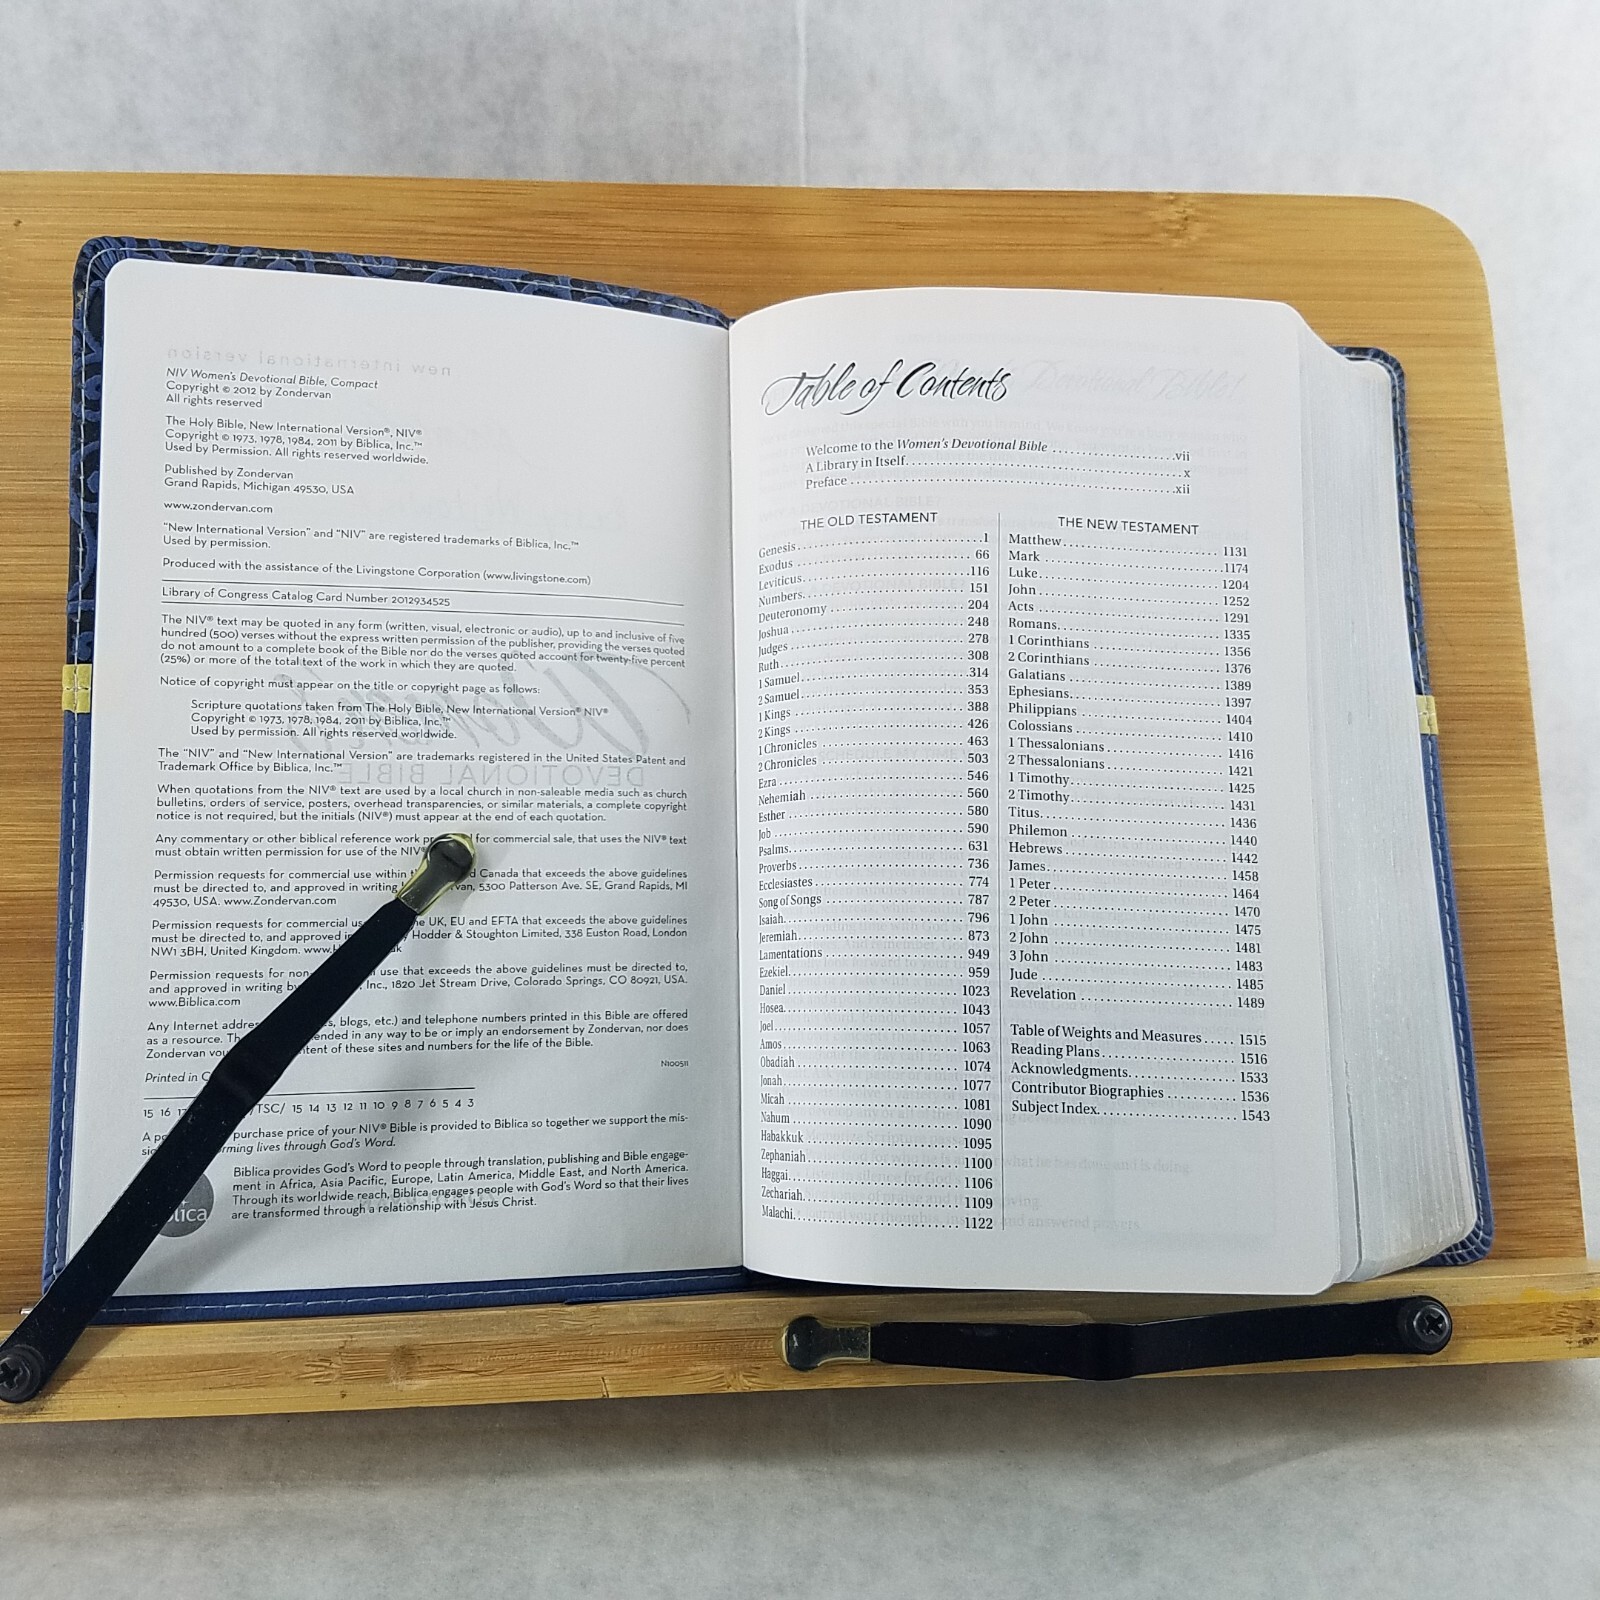 NIV Women's Devotional Bible, Compact
Copyright © 2012 by Zondervan
All rights reserved
The Holy Bible, New International Version®, NIV®
Copyright © 1973, 1978, 1984, 2011 by Biblica, Inc.™
Used by Permission. All rights reserved worldwide.
Published by Zondervan
Grand Rapids, Michigan 49530, USA
www.zondervan.com
"New International Version" and "NIV" are registered trademarks of Biblica, Inc.™
Used by permission.
Produced with the assistance of the Livingstone Corporation (www.livingstone.com)
Library of Congress Catalog Card Number 2012934525
The NIV® text may be quoted in any form (written, visual, electronic or audio), up to and inclusive of five
hundred (500) verses without the express written permission of the publisher, providing the verses quoted
do not amount to a complete book of the Bible nor do the verses quoted account for twenty-five percent
(25%) or more of the total text of the work in which they are quoted.
Notice of copyright must appear on the title or copyright page as follows:
Scripture quotations taken from The Holy Bible, New International Version® NIV®
Copyright © 1973, 1978, 1984, 2011 by Biblica, Inc.™
Used by permission. All rights reserved worldwide.
The "NIV" and "New International Version" are trademarks registered in the United States Patent and
Trademark Office by Biblica, Inc.™
When quotations from the NIV® text are used by a local church in non-saleable media such as church
bulletins, orders of service, posters, overhead transparencies, or similar materials, a complete copyright
notice is not required, but the initials (NIV®) must appear at the end of each quotation.
Any commentary or other biblical reference work for commercial sale, that uses the NIV® text
must obtain written permission for use of the NIV®
Permission requests for commercial use within Canada that exceeds the above guidelines
must be directed to, and approved in writing 5300 Patterson Ave. SE, Grand Rapids, MI
49530, USA. www.Zondervan.com
Permission requests for commercial UK, EU and EFTA that exceeds the above guidelines
must be directed to, and approved Hodder & Stoughton Limited, 338 Euston Road, London
NW1 3BH, United Kingdom.
Permission requests for use that exceeds the above guidelines must be directed to,
and approved in writing by Inc., 1820 Jet Stream Drive, Colorado Springs, CO 80921, USA.
www.Biblica.com
Any Internet blogs, etc.) and telephone numbers printed in this Bible are offered
as a resource. in any way to be or imply an endorsement by Zondervan, nor does
Zondervan of these sites and numbers for the life of the Bible.
N100511
Printed in
15 16 /TSC/ 15 14 13 12 11 10 9 8 7 6 5 4 3
A purchase price of your NIV® Bible is provided to Biblica so together we support the mis-
lives through God's Word.
Biblica provides God's Word to people through translation, publishing and Bible engage-
ment in Africa, Asia Pacific, Europe, Latin America, Middle East, and North America.
Through its worldwide reach, Biblica engages people with God's Word so that their lives
are transformed through a relationship with Jesus Christ.
Table of Contents
Welcome to the Women's Devotional Bible ........ vii
A Library in Itself ........ x
Preface ........ xii
THE OLD TESTAMENT
Genesis ........ 1
Exodus ........ 66
Leviticus ........ 116
Numbers ........ 151
Deuteronomy ........ 204
Joshua ........ 248
Judges ........ 278
Ruth ........ 308
1 Samuel ........ 314
2 Samuel ........ 353
1 Kings ........ 388
2 Kings ........ 426
1 Chronicles ........ 463
2 Chronicles ........ 503
Ezra ........ 546
Nehemiah ........ 560
Esther ........ 580
Job ........ 590
Psalms ........ 631
Proverbs ........ 736
Ecclesiastes ........ 774
Song of Songs ........ 787
Isaiah ........ 796
Jeremiah ........ 873
Lamentations ........ 949
Ezekiel ........ 959
Daniel ........ 1023
Hosea ........ 1043
Joel ........ 1057
Amos ........ 1063
Obadiah ........ 1074
Jonah ........ 1077
Micah ........ 1081
Nahum ........ 1090
Habakkuk ........ 1095
Zephaniah ........ 1100
Haggai ........ 1106
Zechariah ........ 1109
Malachi ........ 1122
THE NEW TESTAMENT
Matthew ........ 1131
Mark ........ 1174
Luke ........ 1204
John ........ 1252
Acts ........ 1291
Romans ........ 1335
1 Corinthians ........ 1356
2 Corinthians ........ 1376
Galatians ........ 1389
Ephesians ........ 1397
Philippians ........ 1404
Colossians ........ 1410
1 Thessalonians ........ 1416
2 Thessalonians ........ 1421
1 Timothy ........ 1425
2 Timothy ........ 1431
Titus ........ 1436
Philemon ........ 1440
Hebrews ........ 1442
James ........ 1458
1 Peter ........ 1464
2 Peter ........ 1470
1 John ........ 1475
2 John ........ 1481
3 John ........ 1483
Jude ........ 1485
Revelation ........ 1489
Table of Weights and Measures ........ 1515
Reading Plans ........ 1516
Acknowledgments ........ 1533
Contributor Biographies ........ 1536
Subject Index ........ 1543